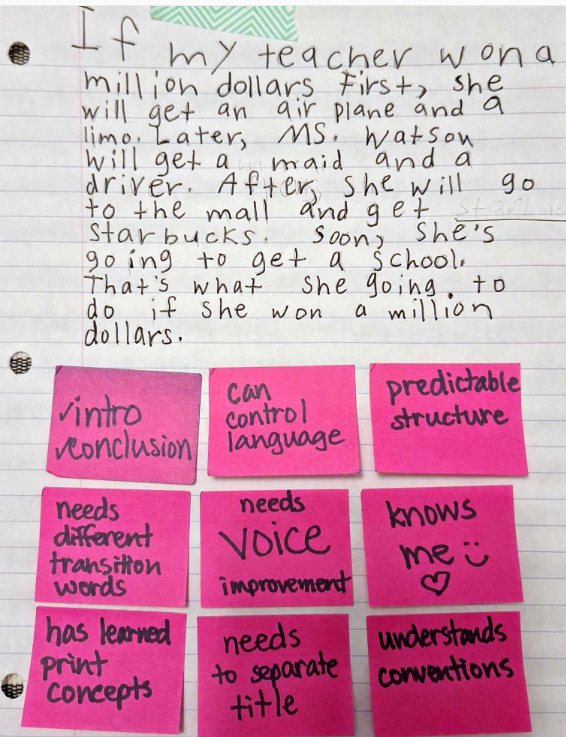 If my teacher won a
million dollars First, she
will get an air plane and a
limo. Later, MS. Watson
Will get a maid and a
driver. After, she will go
to the mall and get
Starbucks. Soon, she's
going to get a school.
That's what she going. to
do if she won a million
dollars.
✓intro
✓conclusion
can
control
language
predictable
structure
needs
different
transition
words
needs
voice
improvement
knows
me
has learned
print
concepts
needs
to separate
title
understands
conventions